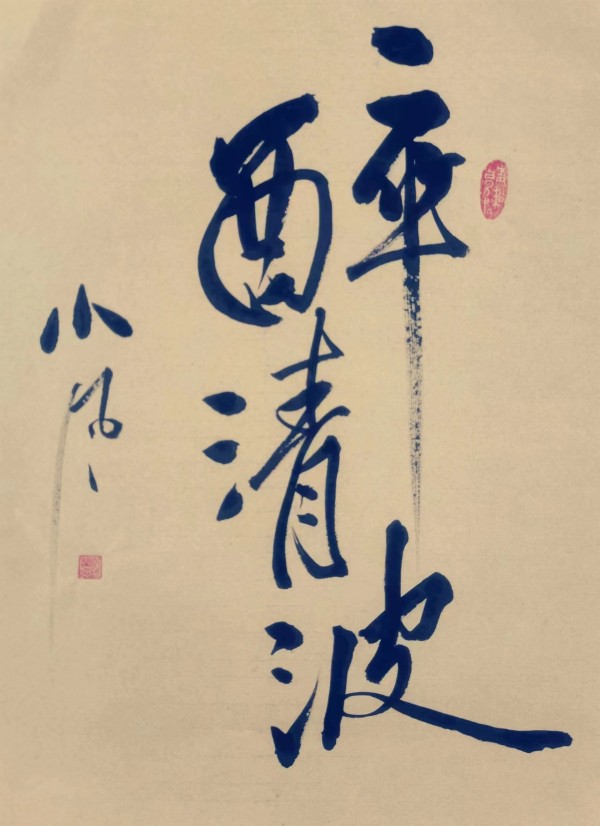 醉清波
小風